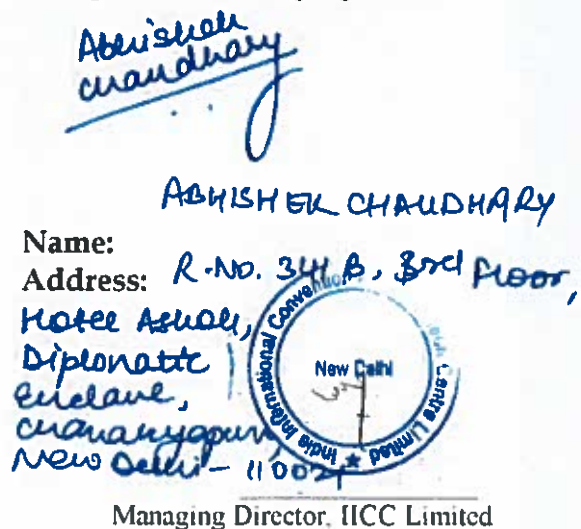 Abhishek
Chaudhary
ABHISHEK CHAUDHARY
Name:
Address: R.No. 341 B, 3rd Floor,
Hotel Ashok,
Diplomatic
Enclave,
Chanakyapuri,
New Delhi - 110021
India International Convention Centre Limited
New Delhi
Managing Director, IICC Limited